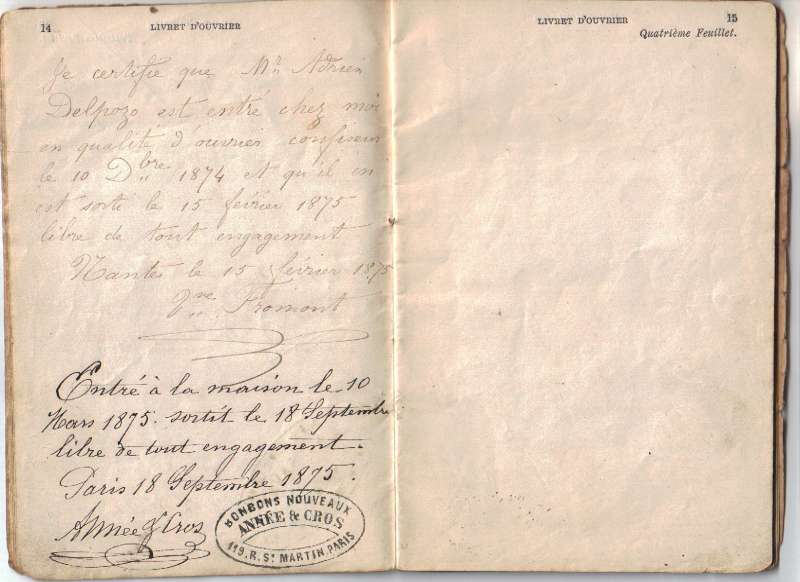 14
LIVRET D'OUVRIER
Je certifie que Mr. Adrien
Delpozo est entré chez moi
en qualité d'ouvrier confiseur
le 10 Dbre 1874 et qu'il en
est sorti le 15 février 1875
libre de tout engagement
Nantes le 15 février 1875
Vve Fromont
Entré à la maison le 10
Mars 1875. sortit le 18 Septembre
libre de tout engagement.
Paris 18 Septembre 1875.
Année & Cros
BONBONS NOUVEAUX
ANNÉE & CROS
119. R. St MARTIN. PARIS
LIVRET D'OUVRIER
15
Quatrième Feuillet.